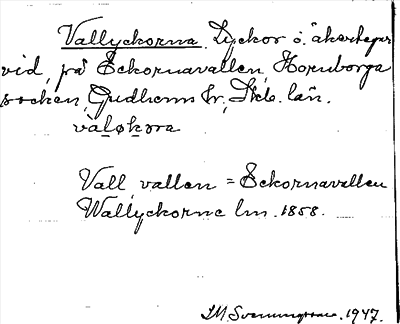 Vallyckorna. Lyckor o. åkertegar
vid, på Ekornavallen, Hornborga
socken, Gudhems hr, Skb. län.
väløkɷra
Vall, vallen = Ekornavallen
Wallyckorne lm. 1858.
IM Svenungsson. 1947.